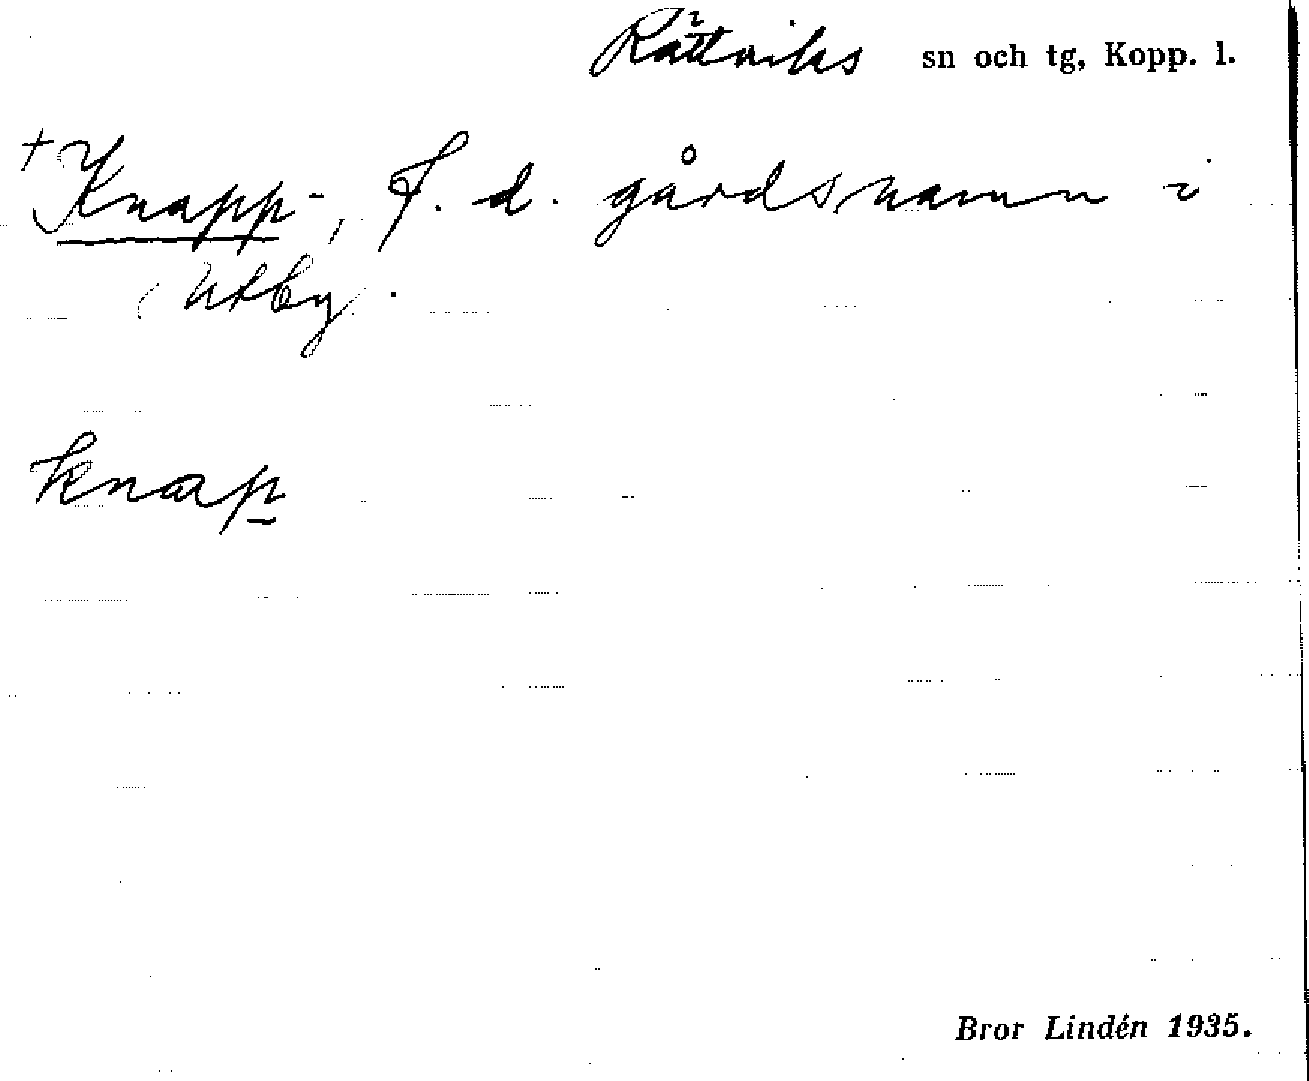 Rättviks sn och tg, Kopp. l.
+ Knapp-, F. d. gårdsnamn i
Utby.
knap
Bror Lindén 1935.